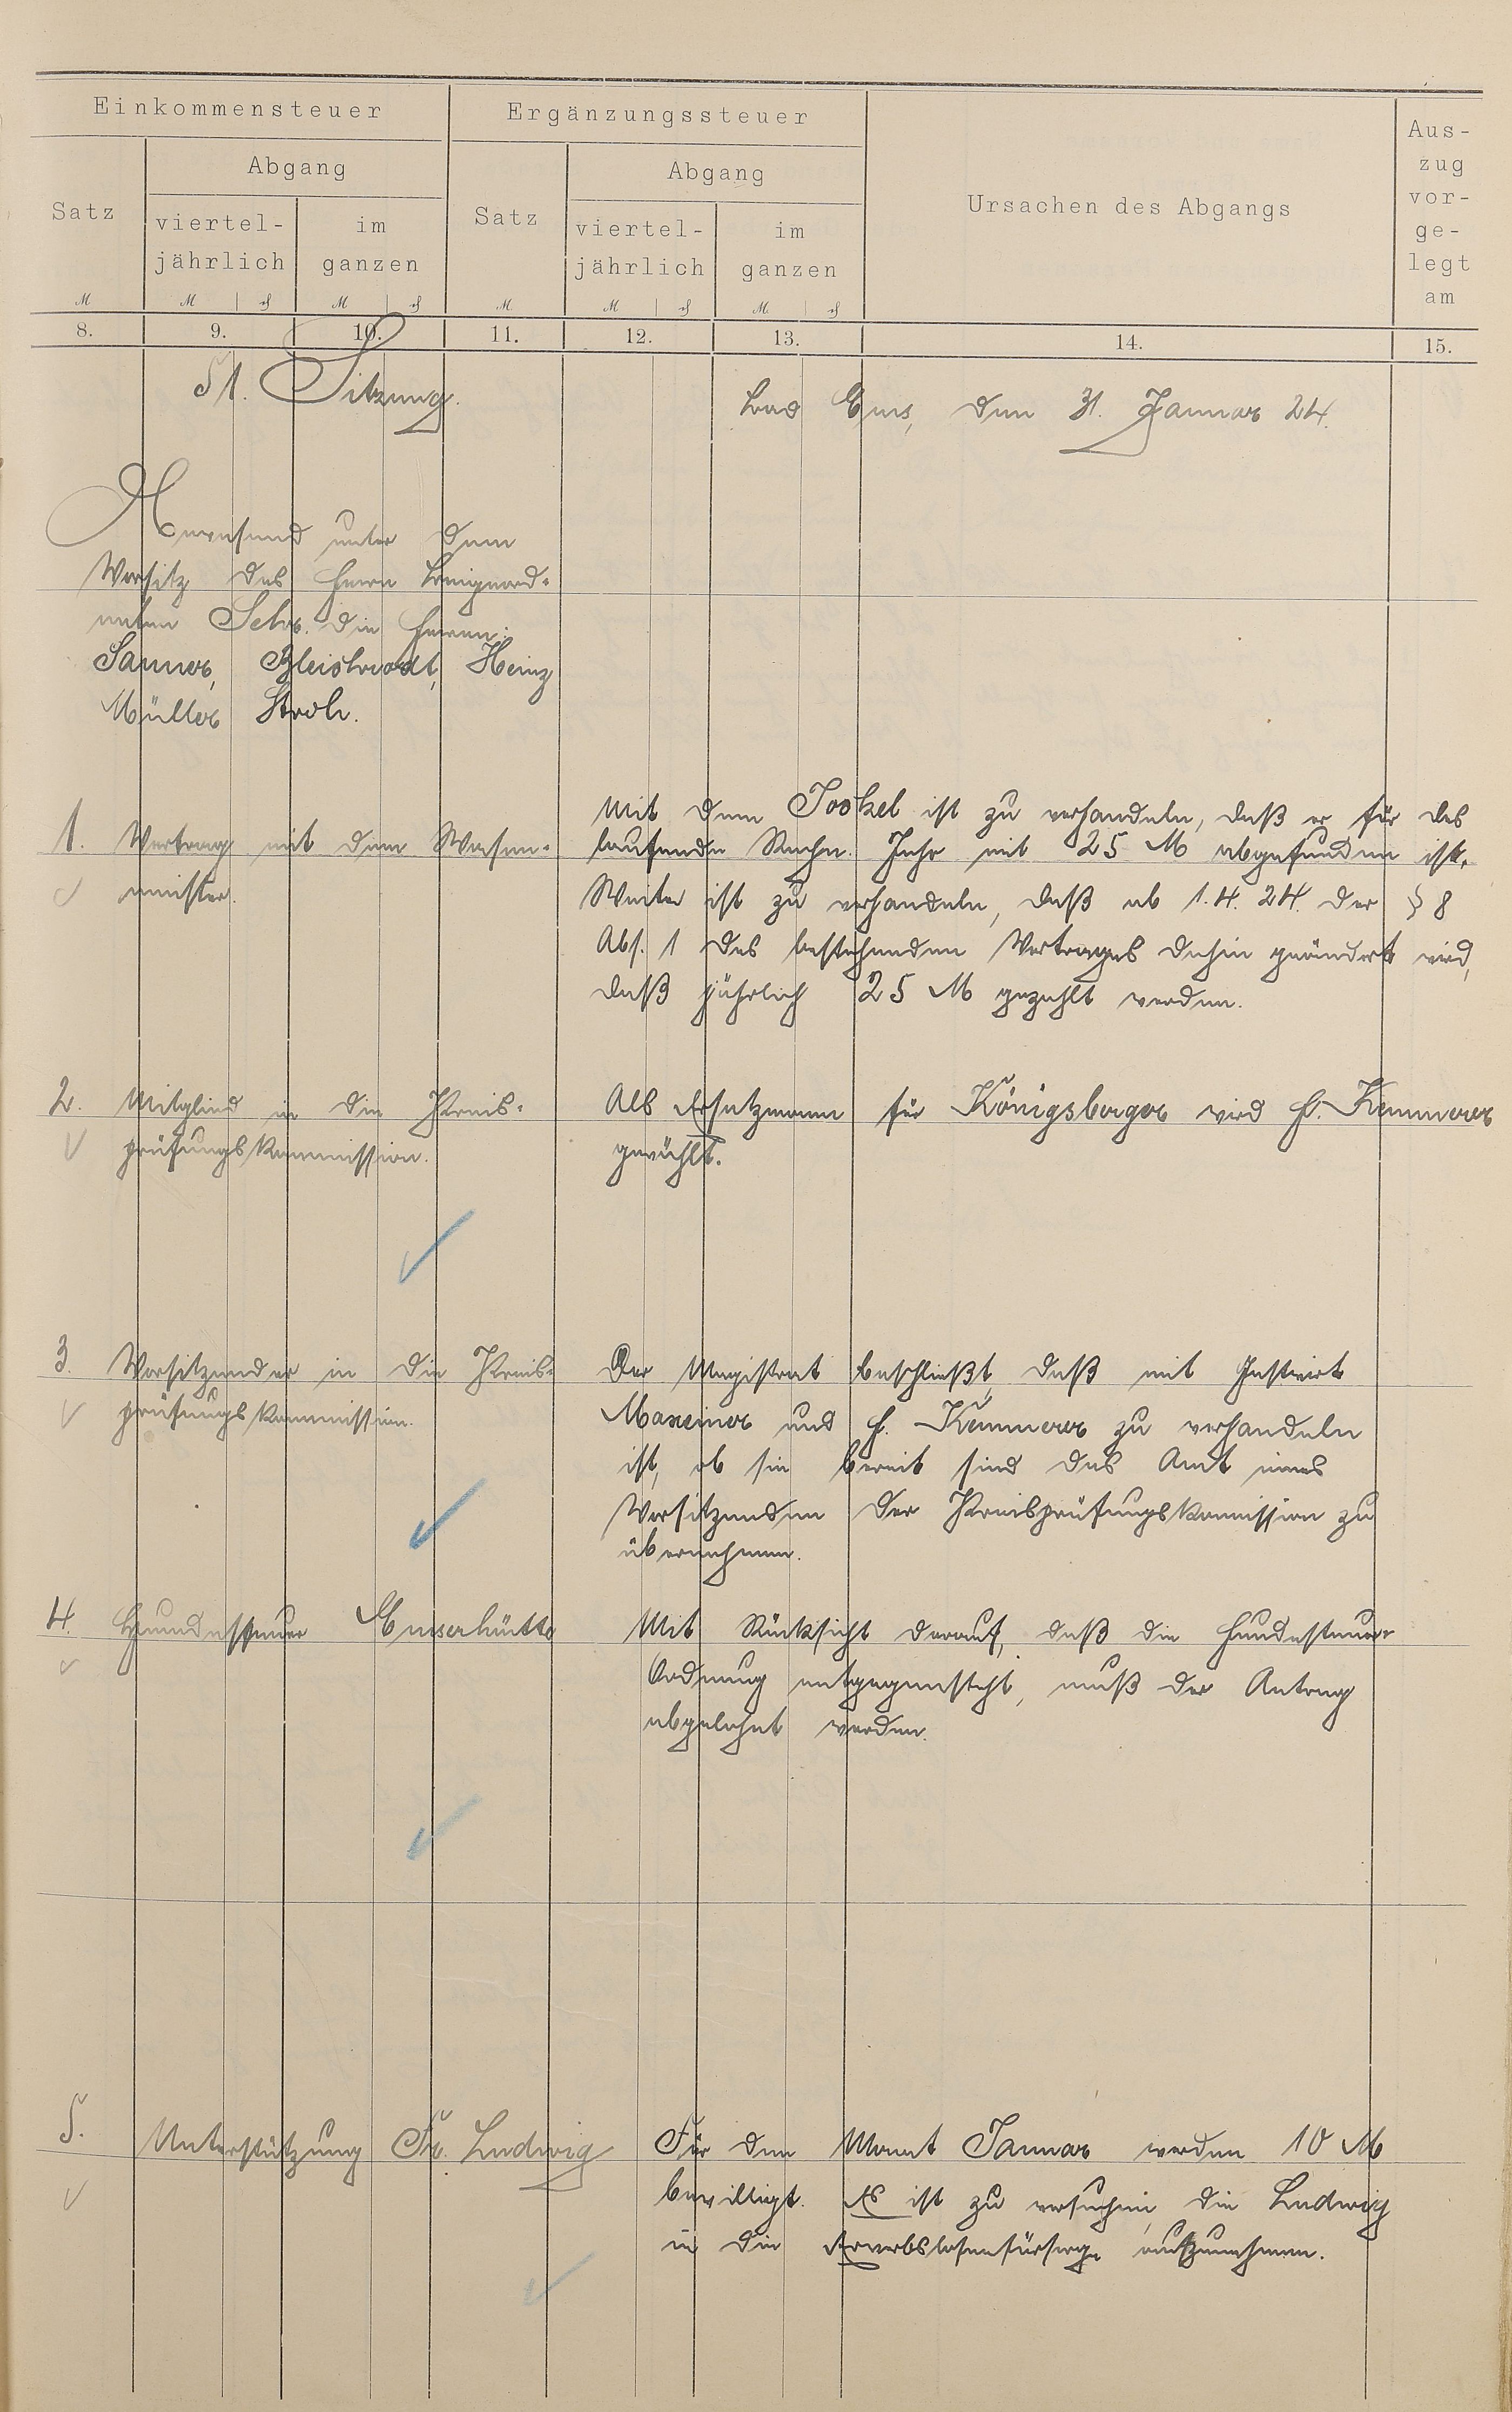 Einkommensteuer
Ergänzungssteuer
Ursachen des Abgangs
Aus-
zug
vor-
ge-
legt
am
Satz
Abgang
viertel-
jährlich
im
ganzen
Satz
Abgang
viertel-
jährlich
im
ganzen
M
M
M
M
M
M
8.
9.
10.
11.
12.
13.
14.
15.
51. Sitzung.
Bad Ems, den 31. Januar 24.
Anwesend unter dem
Vorsitz des Herrn Beigeord-
neten Schr. die Herren:
Sanner, Bleistrodt, Heinz
Müller Stroh.
1. Vertrag mit dem Wasen-
meister.
Mit dem Jockel ist zu verhandeln, daß er für das
laufende Rechn. Jahr mit 25 M abgefunden ist.
Weiter ist zu verhandeln, daß ab 1.4.24. der § 8
Abs. 1 des bestehenden Vertrages dahin geändert wird,
daß jährlich 25 M gezahlt werden.
2. Mitglied in die Kreis-
prüfungskommission.
Als Ersatzmann für Königsberger wird H. Kemmerer
gewählt.
3. Vorsitzender in die Kreis-
prüfungskommission.
Der Magistrat beschließt, daß mit Gastwirt
Maxeiner und H. Kemmerer zu verhandeln
ist, ob sie bereit sind das Amt eines
Vorsitzenden der Kreisprüfungskommission zu
übernehmen.
4. Hundesteuer Emserhütte
Mit Rücksicht darauf, daß die Hundesteuer-
Ordnung entgegensteht, muß der Antrag
abgelehnt werden.
5. Unterstützung Fr. Ludwig
Für den Monat Januar werden 10 M
bewilligt. Es ist zu versuchen, die Ludwig
in die Erwerbslosenfürsorge aufzunehmen.